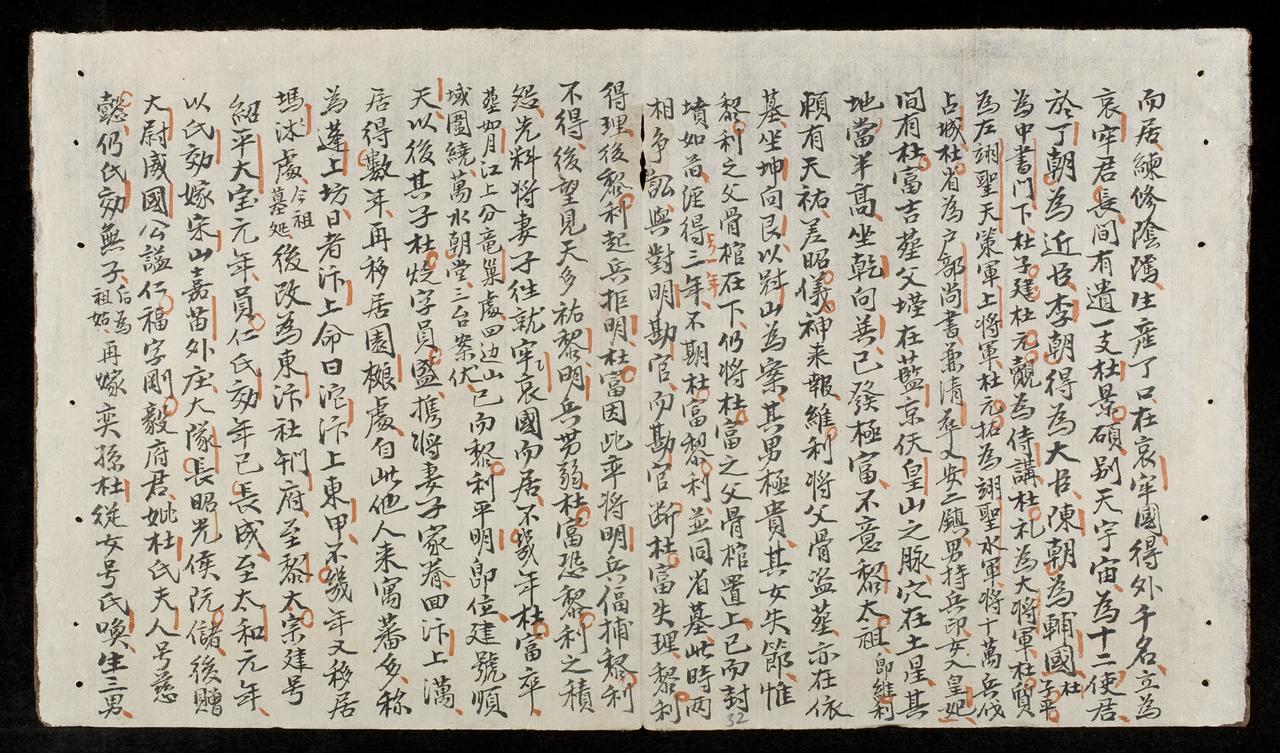 而居練修陰隲生産丁口在哀牢國得外千名立為
哀牢君長間有遺一支杜景碩别天宇宙為十二使君
於丁朝為近臣李朝得為大臣陳朝為輔國杜子平
為中書門下杜子建杜元覿為侍講杜礼為大將軍杜賢
為左翊聖天策軍上將軍杜元拓為翊聖水軍將十萬兵伐
占城杜省為户部尚書兼清乂安二鎮男持兵印女入皇妃
间有杜富吉葬父墳在藍京伏皇山之脉穴在土星其
地當半髙坐乾向㢲已發極富不意黎太祖即維利
頼有天祐差昭儀神来報維利將父骨盗葬亦在依
基坐坤向艮以冠山為案其男極貴其女失節惟
黎利之父骨棺在下仍將杜富之父骨棺置上已而封
32
墳如前涯得三年不期杜富黎利並同省墓此時两
壬年
相争訟與對明勘官而勘官断杜富失理黎利
得理後黎利起兵拒明杜富因此率將明兵偪捕黎利
不得後望見天多祐黎明兵势弱杜富恐黎利之積
怨先料將妻子徃就牢哀國而居不幾年杜富卒
葬如月江上分竜巢處四边山
域圍繞萬水朝堂三台案伏已而黎利平明即位建號順
天以後其子杜燒字員盛携將妻子家眷回汴上溝
居得數年再移居園榔處自此他人来寓蕃多称
為蓬上坊日者汴上命曰沱汴上東甲不幾年又移居
塢沭處今祖墓処後改為東汴社衙府至黎太宗建号
紹平大宝元年員仁氏効年已長成至太和元年
以氏効嫁宋山嘉苗外庄大隊長昭光侯阮儲後贈
大尉威國公謚仁福字剛毅府君妣杜氏夫人号慈
懿仍氏効無子后為祖姑再嫁奕孫杜從女号氏喚生三男